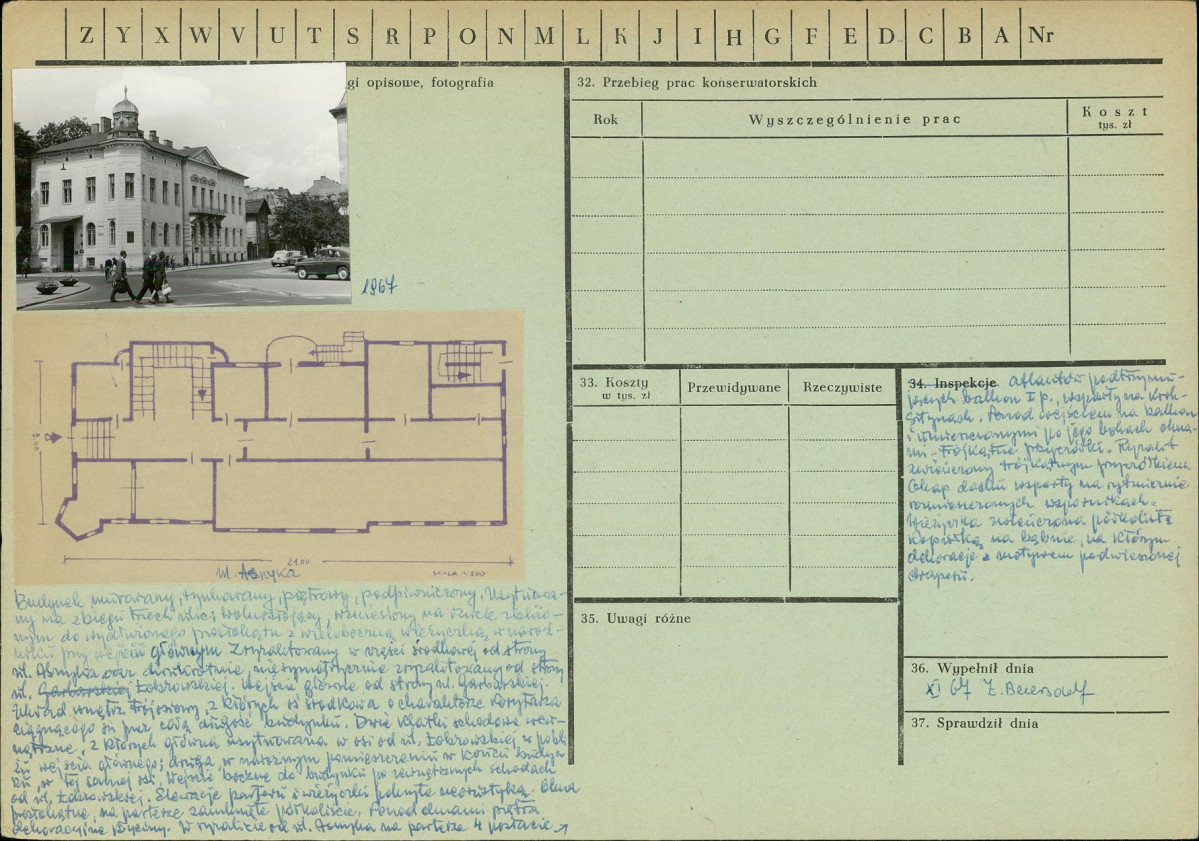 Z Y X W V U T S R P O N M L K J I H G F E D C B A Nr
gi opisowe, fotografia
1967
21.00
ul. Asnyka
SKALA 1:200
Budynek murowany, tynkowany, piętrowy, podpiwniczony. Usytuowa-
ny na zbiegu trzech ulic; wolnostojący, wzniesiony na rzucie zbliżo-
nym do wydłużonego prostokąta z wieloboczną wieżyczką w naroż-
niku przy wejściu głównym. Zryzalitowany w części środkowej od strony
ul. Asnyka oraz dwukrotnie, niesymetrycznie zryzalitowany od strony
ul. Garbarskiej Łobzowskiej. Wejście główne od strony ul. Garbarskiej.
Układ wnętrz trójosiowy, z których oś środkowa o charakterze korytarza
ciągnącego się przez całą długość budynku. Dwie klatki schodowe wewnę-
trzne, z których główna usytuowana w osi od ul. Łobzowskiej w pobli-
żu wejścia głównego; druga, w narożnym pomieszczeniu w końcu budyn-
ku, w tej samej osi. Wejście boczne do budynku po zewnętrznych schodach
od ul. Łobzowskiej. Elewacje parteru i wieżyczki pokryte rustyką. Okna
prostokątne, na parterze zamknięte półkoliście. Ponad oknami piętra
dekoracyjne tyciny. W ryzalicie od ul. Asnyka na parterze 4 postacie
32. Przebieg prac konserwatorskich
Rok
Wyszczególnienie prac
Koszt
tys. zł
33. Koszty
w tys. zł
Przewidywane
Rzeczywiste
34. Inspekcje
atlantów podtrzymu-
jących balkon I p., wsparty na krok-
sztynach. Ponad wejściem na balkon
i umieszczonymi po jego bokach okna-
mi - trójkątne przyczółki. Ryzalit
zwieńczony trójkątnym przyczółkiem.
Okap dachu wsparty na rytmicznie
rozmieszczonych wspornikach.
Wieżyczka zwieńczona półkolistą
kopułką na bębnie, na którym
dekoracje z motywem podwieszonej
draperii.
35. Uwagi różne
36. Wypełnił dnia
XI 67 Z. Beiersdorf
37. Sprawdził dnia